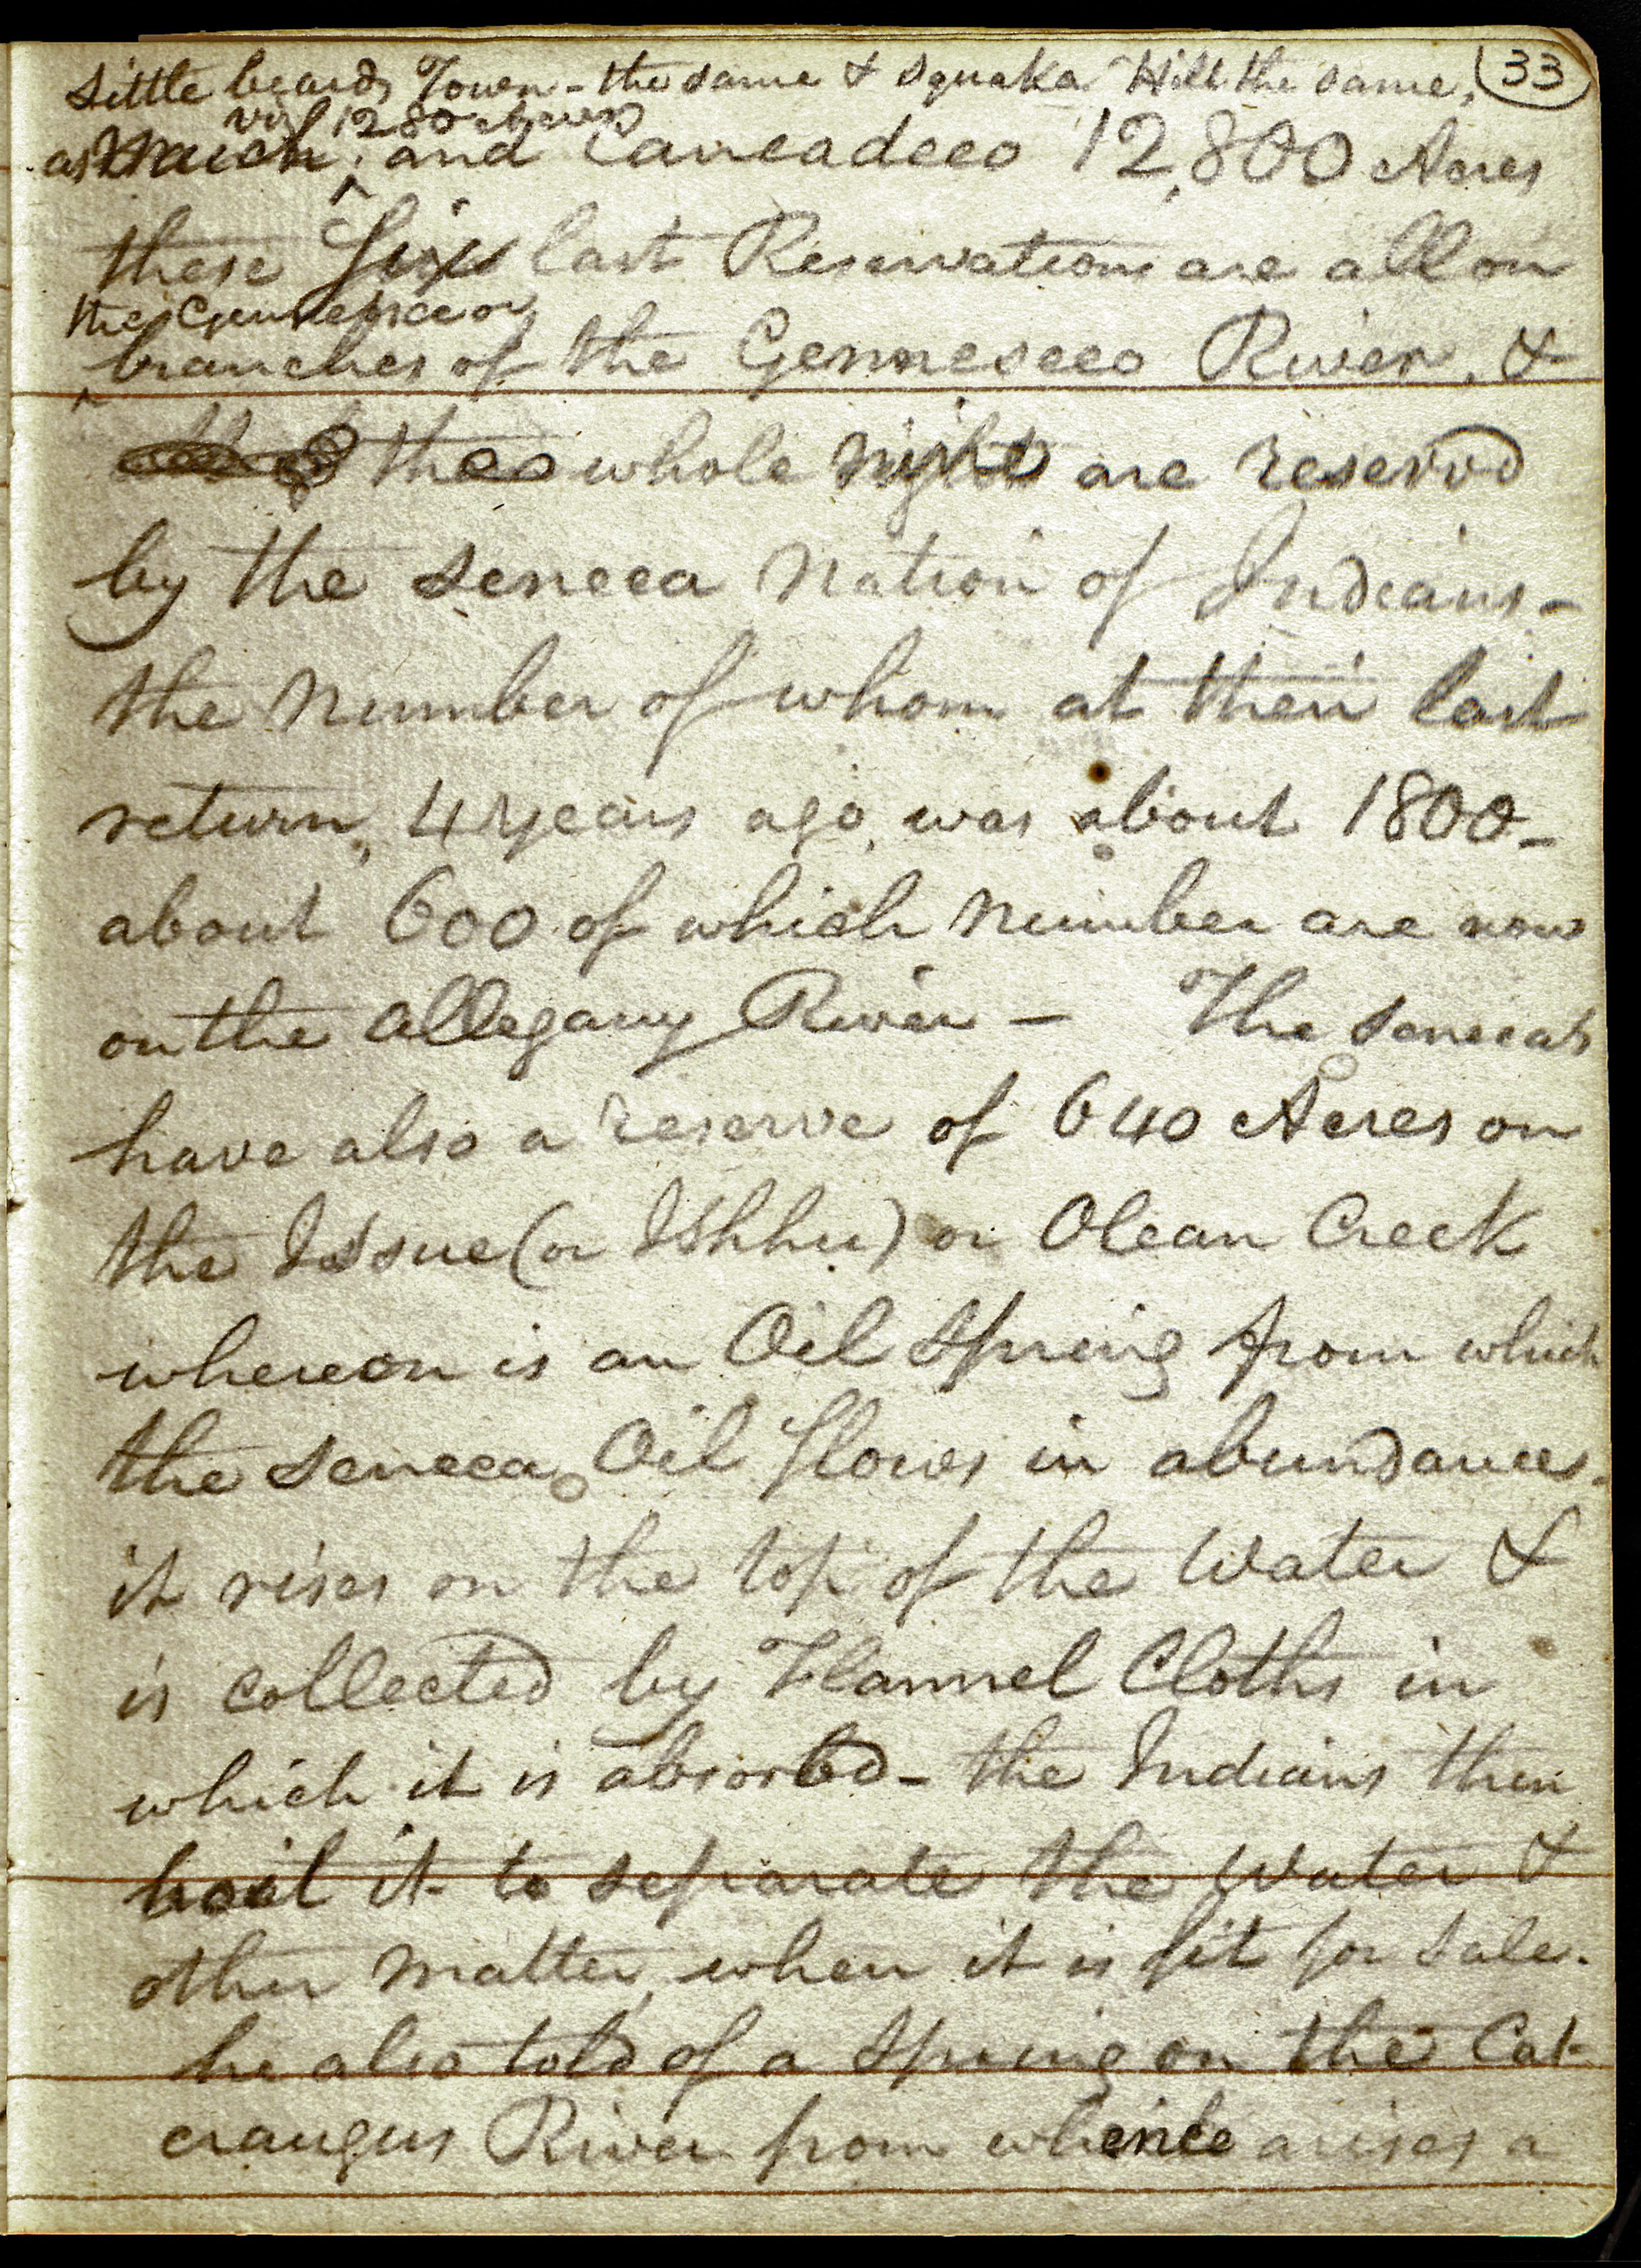 33
Little beards Town - the same & Squaka Hill the same,
viz 1280 Acres
as much, and Caneadeeo 12,800 Acres
these Six last Reservations are all on
the Gennesee or
branches of the Genneseeo River, &
the whole night are reservd
by the Seneca Nation of Indians -
the Number of whom at their last
return, 4 years ago, was about 1800 -
about 600 of which Number are now
on the Allegany River - The Senecas
have also a reserve of 640 Acres on
the Issue (or Ishhu) or Olean Creek
whereon is an Oil Spring from which
the Seneca Oil flows in abundance.
it rises on the top of the Water &
is collected by Flannel Cloths in
which it is absorbd - the Indians then
boil it to separate the Water &
other Matter, when it is fit for Sale.
he also told of a Spring on the Cat-
eraugus River from whence arises a